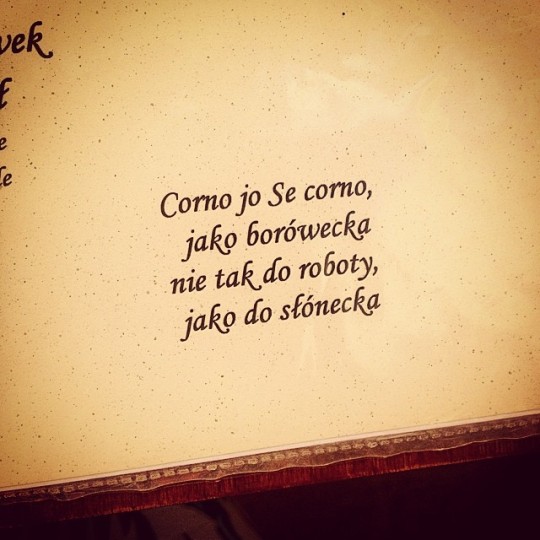 Corno jo Se corno,
jako borówecka
nie tak do roboty,
jako do słónecka